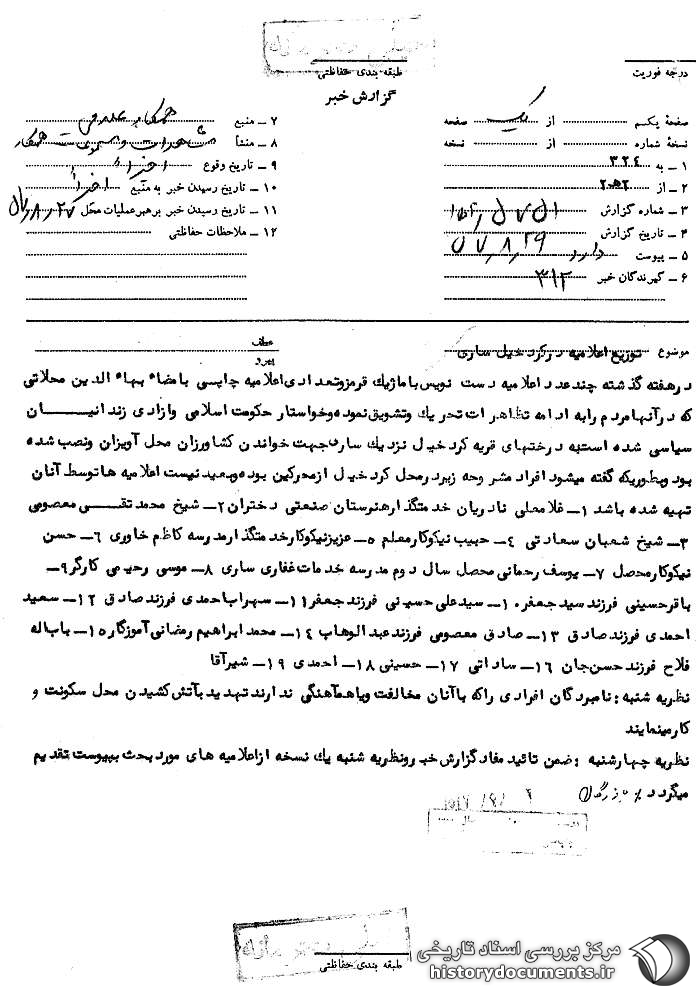 درجه فوریت
طبقه بندی حفاظتی
گزارش خبر
صفحهٔ یکم از یک صفحه
نسخهٔ شماره از نسخه
۱ ـ به ۳۲٤
۲ ـ از ۲ﻫ۲
۳ ـ شماره گزارش
۴ ـ تاریخ گزارش ۵۷٫۸٫۲۹
۵ ـ پیوست دارد
۶ ـ گیرندگان خبر ۳۱۲
۷ ـ منبع همکار
۸ ـ منشأ همکار
۹ ـ تاریخ وقوع اخیراً
۱۰ ـ تاریخ رسیدن خبر به منبع اخیراً
۱۱ ـ تاریخ رسیدن خبر برهبر عملیات محل ۵۷٫۸٫۲۷
۱۲ ـ ملاحظات حفاظتی
موضوع توزیع اعلامیه در کرد خیل ساری
عطف
پیرو
در هفته گذشته چند عدد اعلامیه دست نویس با ماژیك قرمز و تعدادی اعلامیه چاپی بامضاء بهاء الدین محلاتی
که در آنها مردم را به ادامه تظاهرات تحریك و تشویق نموده و خواستار حکومت اسلامی و ازادی زندانیـــــان
سیاسی شده است به درختهای قریه کرد خیل نزدیك ساری جهت خواندن کشاورزان محل آویزان و نصب شده
بود و بطوریکه گفته میشود افراد مشروحه زیر در محل کرد خیل از محرکین بوده و بعید نیست اعلامیه ها توسط آنان
تهیه شده باشد ۱ـ غلامعلی نادریان خدمتگذار هنرستان صنعتی دختران ۲ـ شیخ محمد تقـــی معصومی
۳ـ شیخ شعبان سعادتی ٤ـ حبیب نیکوکار معلم ۵ـ عزیز نیکوکار خدمتگذار مدرسه کاظم خاوری ٦ـ حسن
نیکوکار محصل ۷ـ یوسف رحمانی محصل سال دوم مدرسه خدمات غفاری ساری ۸ـ موسی رحیمی کارگر ۹ـ
باقر حسینی فرزند سید جعفر ۱۰ـ سید علی حسینی فرزند جعفر ۱۱ـ سهراب احمدی فرزند صادق ۱۲ـ سعید
احمدی فرزند صادق ۱۳ـ صادق معصومی فرزند عبد الوهاب ۱٤ـ محمد ابراهیم رمضانی آموزگار ۱۵ـ باباله
فلاح فرزند حسن جان ۱٦ـ ساداتی ۱۷ـ حسینی ۱۸ـ احمدی ۱۹ـ شیرآقا
نظریه شنبه : نامبردگان افرادی را که با آنان مخالفت و یا هماهنگی ندارند تهدید بآتش کشیدن محل سکونت و
کار مینمایند
نظریه چهارشنبه : ضمن تائید مفاد گزارش خبر و نظریه شنبه یك نسخه از اعلامیه های مورد بحث بپیوست تقدیم
میگردد
طبقه بندی حفاظتی
مرکز بررسی اسناد تاریخی
historydocuments.ir